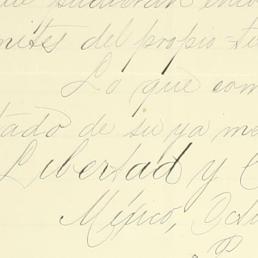 mites del propio te
Lo que com
tado de su ya me
Libertad y C
México, Octu